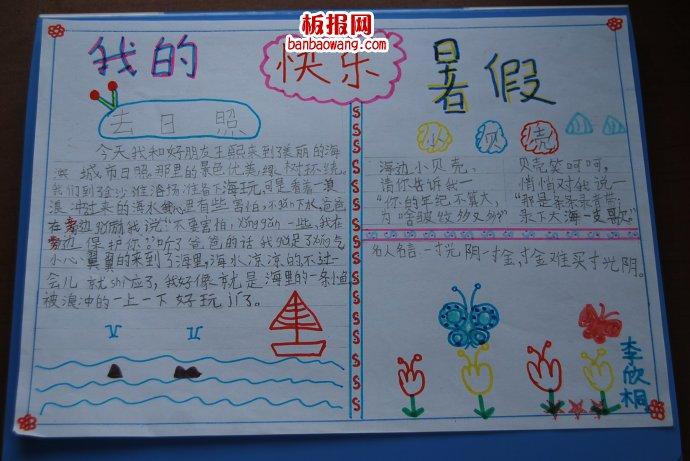 板报网
banbaowang.com
我的 快乐 暑假
去日照
今天我和好朋友王熙来到了美丽的海
滨城市日照,那里的景色优美,绿树环绕。
我们到金沙滩浴场准备下海玩,可是看着一浪
浪冲过来的海水心里有些害怕,不gǎn下水,爸爸
在旁边励我说:“不要害怕,yǒnggǎn一些,我在
旁边保护你。”听了爸爸的话我鼓足了yǒng气
小心翼翼的来到了海里,海水凉凉的不过一
会儿就shì应了,我好像就是海里的一条鱼
被浪冲的一上一下好玩jí了。
小贝壳
海边小贝壳,
请你告诉我—
“你的年纪不算大,
为啥皱纹多又多?”
贝壳笑呵呵,
悄悄对我说—
“那是录音带,
录下大海一支歌。”
名人名言一寸光阴一寸金,寸金难买寸光阴。
李欣桐